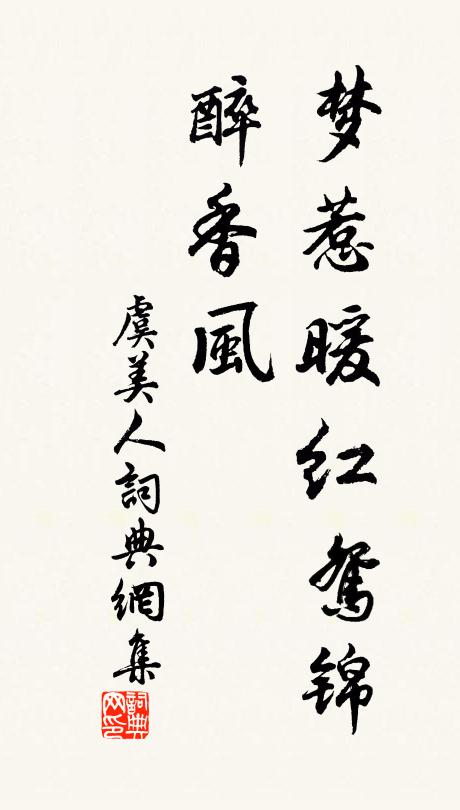 梦惹暖红鸳锦
醉香風
虞美人詞典網集
詞典
网印